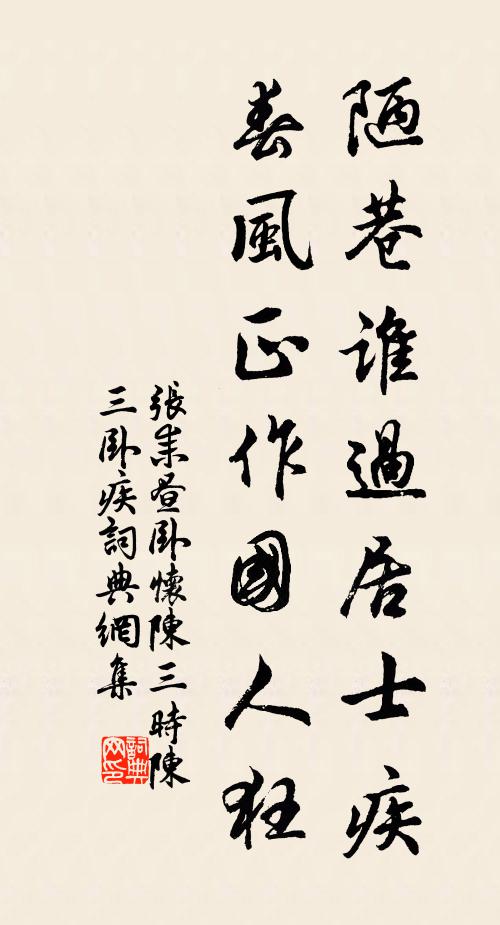 陋巷誰過居士疾
春風正作國人狂
張耒晝臥懷陳三時陳
三臥疾詞典網集
詞典網印